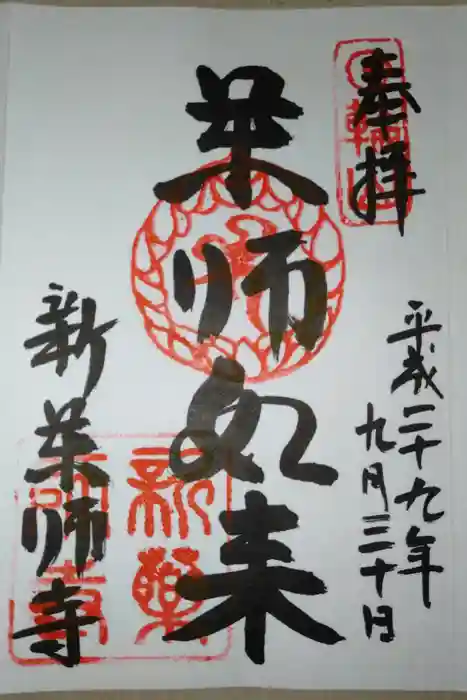 奉拝
平成二十九年
九月三十日
薬師如来
新薬師寺
新薬
師寺